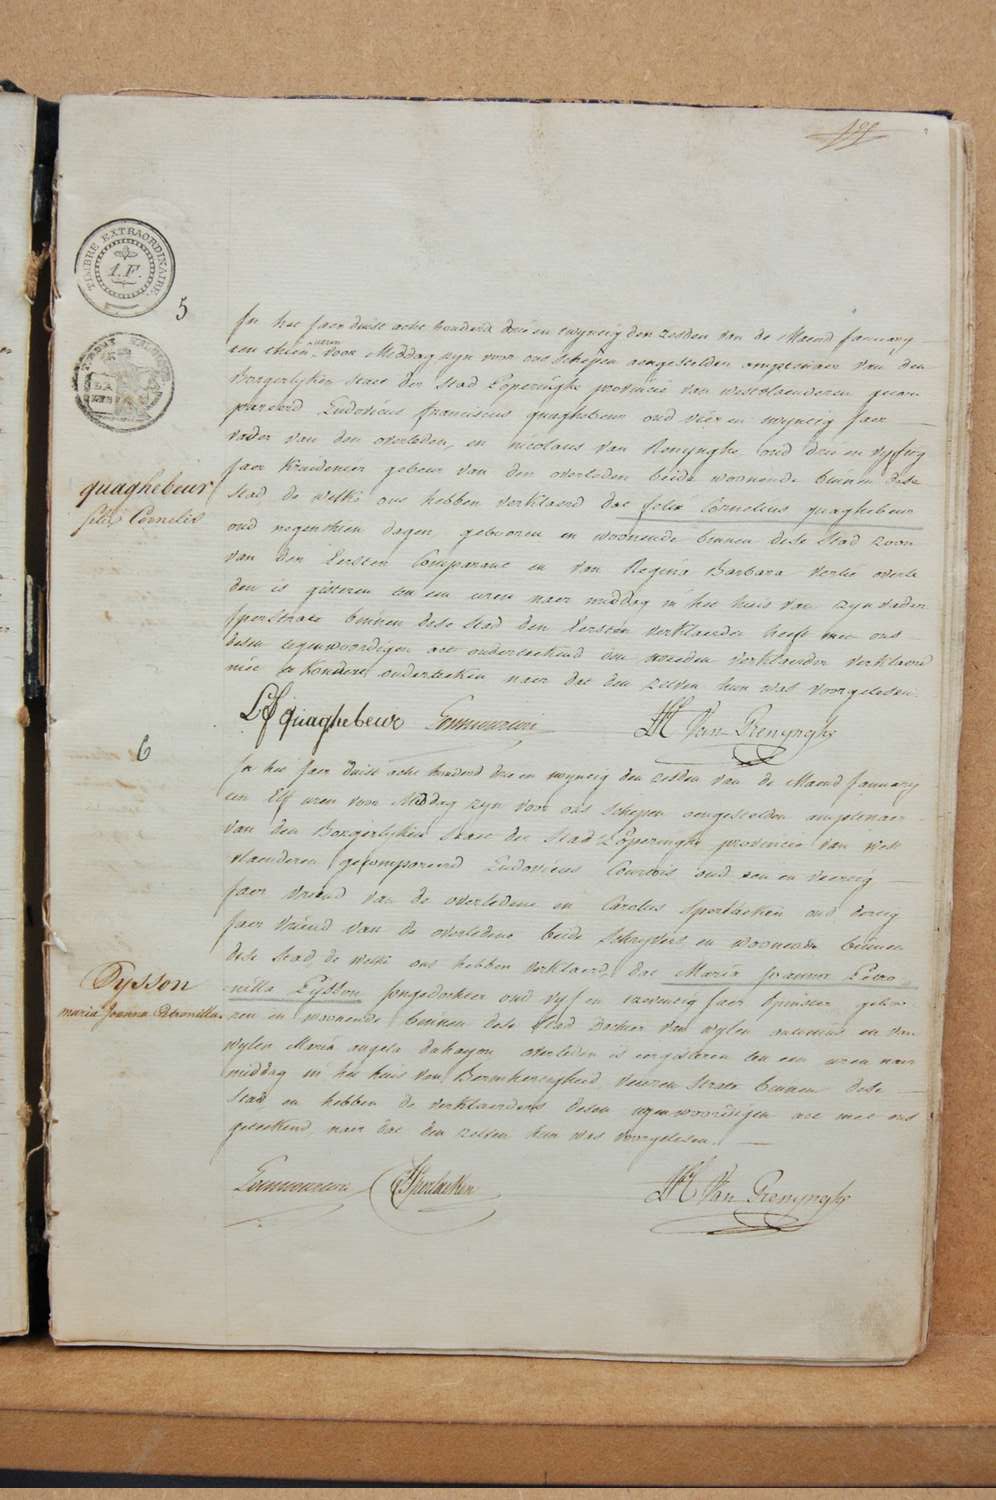 TIMBRE EXTRAORDINAIRE
1.F.
5
In het Jaer duist acht honderd drie en twyntig den zesden van de Maend January
ten thien uren voor Middag zyn voor ons schepen aengestelden amptenaer van den
Borgerlyken staet der stad Poperinghe provincie van westvlaenderen gecom
pareerd Ludovicus franciscus quaghebeur oud vier en twyntig Jaer
vader van den overleden, en nicolaus van Renynghe oud drie en vyftig
Jaer Kruidenier gebeur van den overleden beide woonende binnen dese
stad de welke ons hebben verklaerd dat felix Cornelius quaghebeur
oud negenthien dagen, gebooren en woonende binnen dese stad zoon
van den Eersten Comparant en van Regina Barbara verlie overle
den is gisteren ten een uren naer middag in het huis van zyn vader
Iperstraete binnen dese stad den Eersten verklaerder heeft met ons
desen tegenwoordigen act onderteekend den tweeden verklaerder verklaerd
niet te konnen onderteeken naer dat den zelven hun was voorgelesen.
quaghebeur
felix Cornelis
LF quaghebeur
Van Renynghe
6
In het Jaer duist acht honderd drie en twyntig den zesden van de Maend January
ten Elf uren voor Middag zyn voor ons schepen aengestelden amptenaer
van den Borgerlyken staet der stad Poperinghe provincie van west
vlaenderen gecompareerd Ludovicus Courtois oud een en veertig
Jaer vriend van de overledene en Carolus Sperlaeken oud dertig
Jaer vriend van de overledene beide schryvers en woonende binnen
dese stad de welke ons hebben verklaerd dat Maria Joanna Petro
nilla Pysson Jongedochter oud vyf en twintig Jaer spinster geboo
ren en woonende binnen dese stad dochter van wylen antonius en van
wylen Maria angela dahayon overleden is eergisteren ten een uren naer
middag in het huis van Bermhertigheid veurne straete binnen dese
stad en hebben de verklaerders desen tegenwoordigen act met ons
geteekend, naer dat den zelven hun was voorgelesen.
Pysson
maria Joanna Petronilla
C Sperlaeken
Van Renynghe